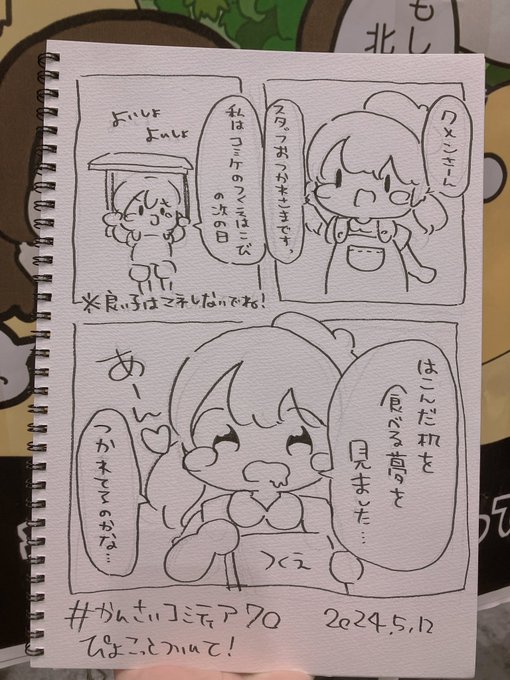 もし
北
ワメンさーん
スタッフおつかれさまです。
私は
コミケのつくえはこび
の次の日
よいしょ
よいしょ
※良い子はマネしないでね!
はこんだ机を
食べる夢を
見ました…
あーん
つかれてるのかな…
つくえ
#かんさいコミティア70
2024.5.12
ぴょこっとついて!